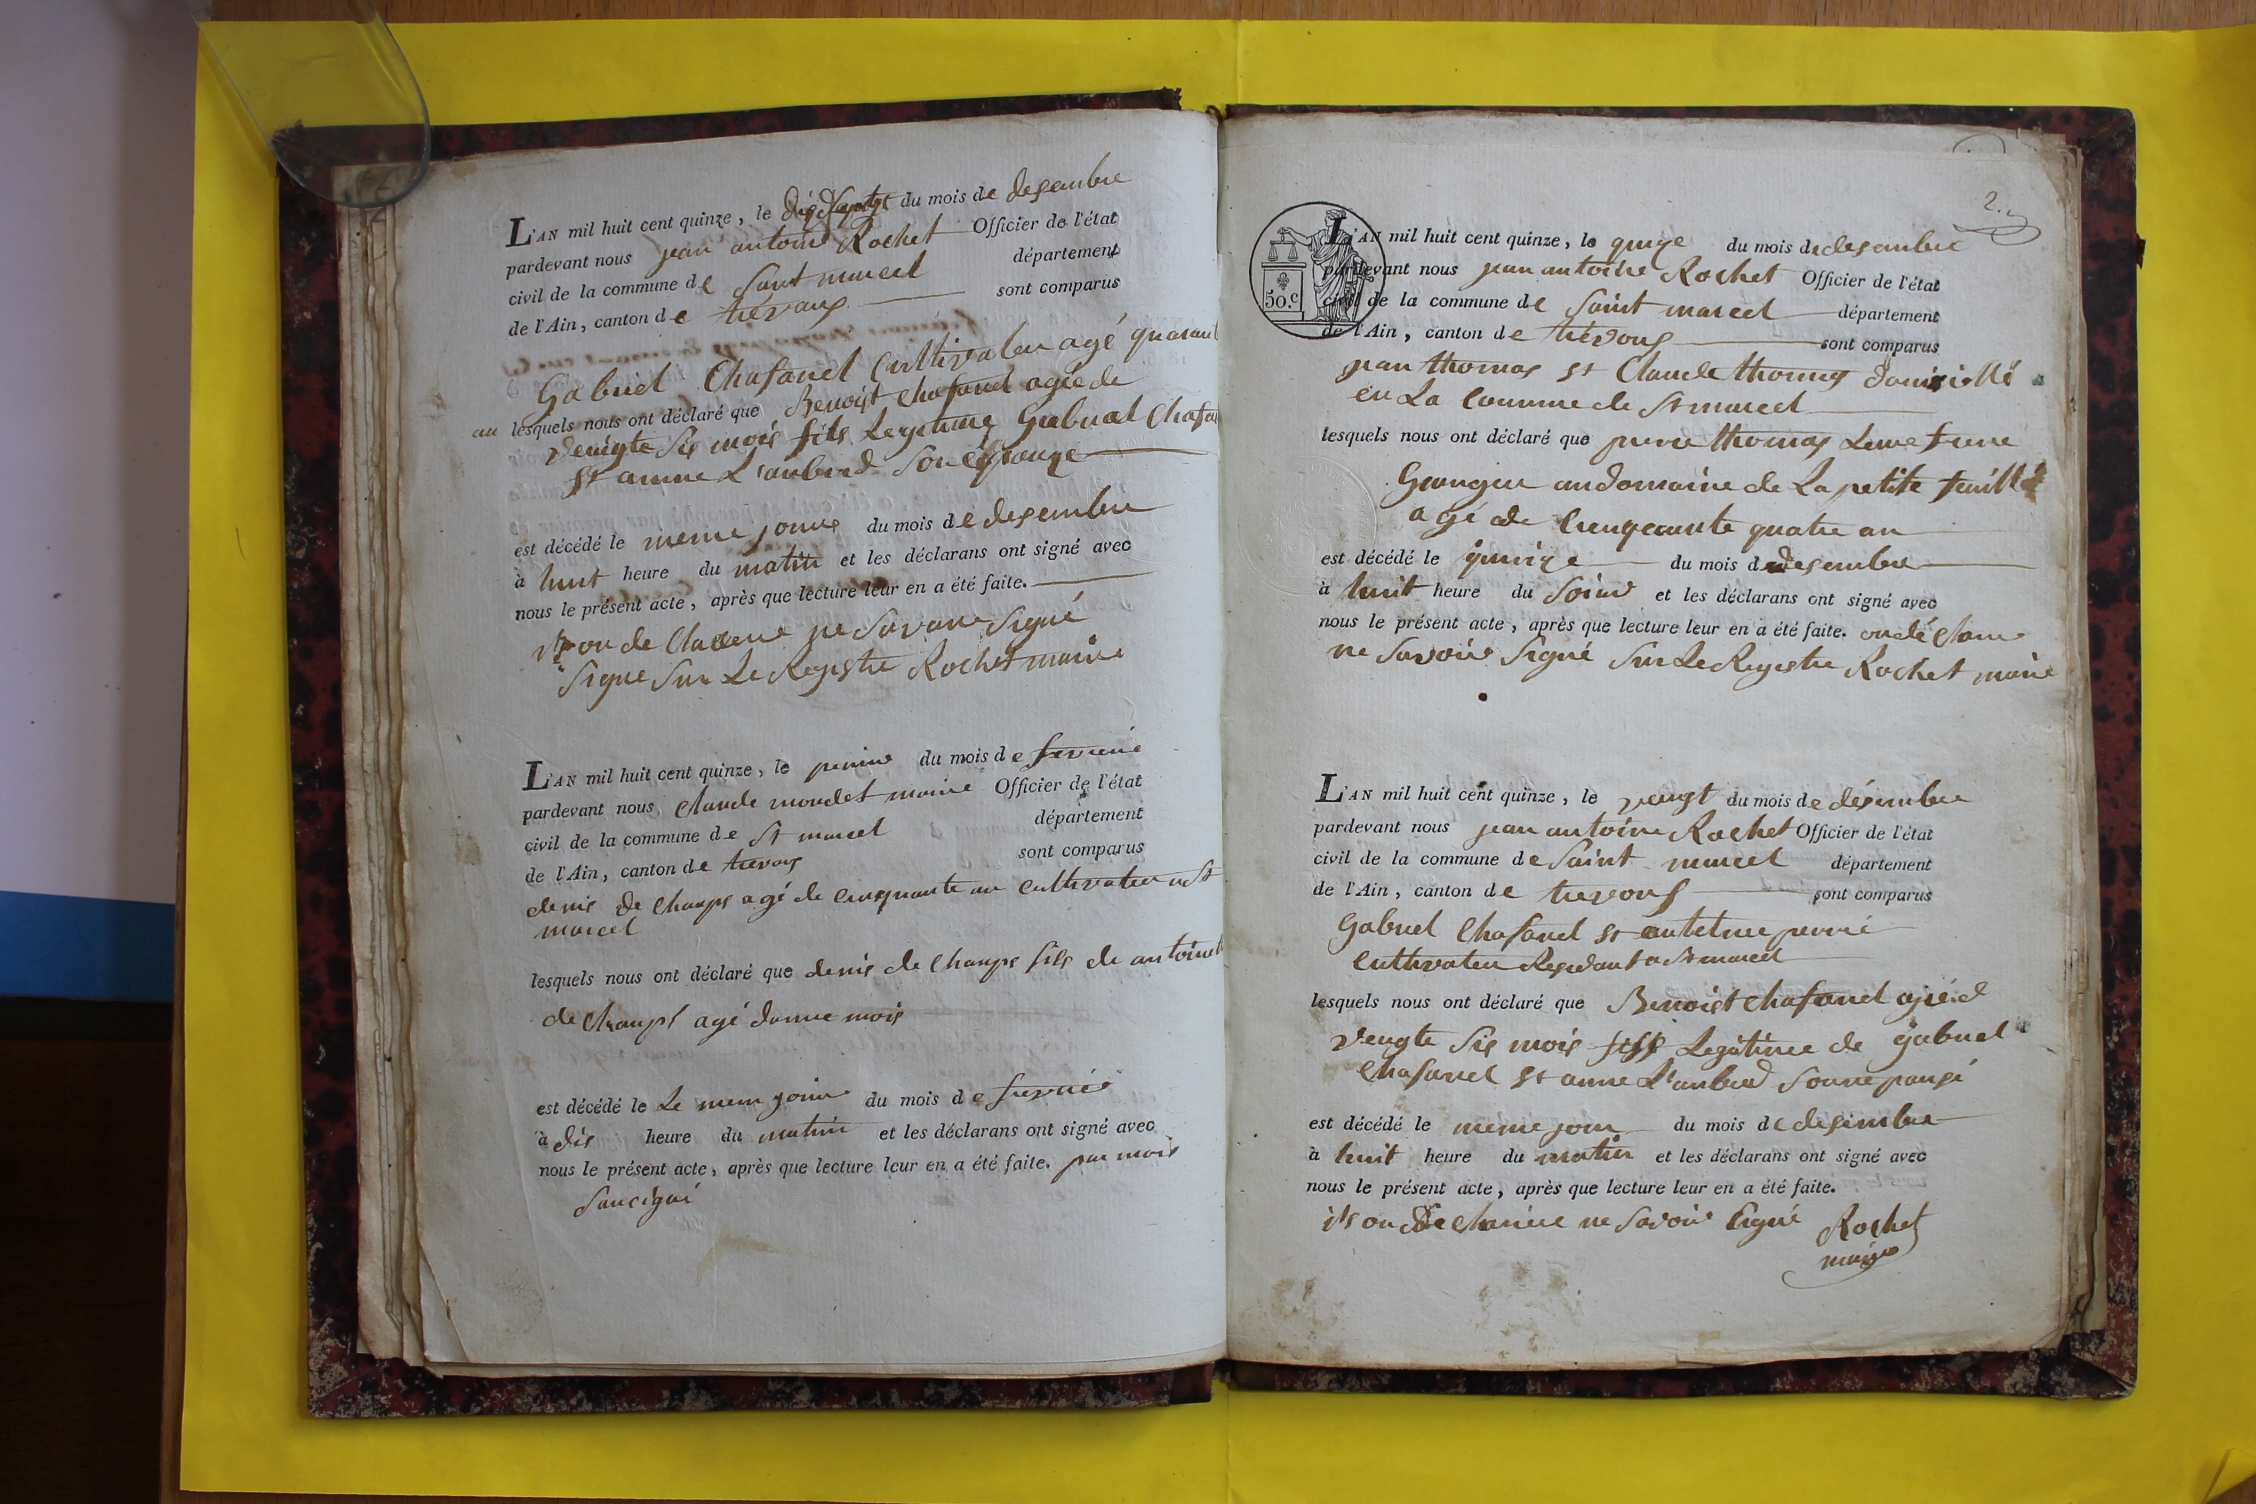 L'AN mil huit cent quinze, le du mois de desembre
pardevant nous jean antoine Rochet Officier de l'état
civil de la commune de Saint marcel département
de l'Ain, canton de trevoux sont comparus
Gabriel Chafanel Cultivateu agé quarant
an lesquels nous ont déclaré que Benoist Chafanel agée de
vengte Sis mois fils Legitime Gabrial Chafa
st anne L'anbard Son Epouze
est décédé le meme jour du mois de desembre
à huit heure du matin et les déclarans ont signé avec
nous le présent acte, après que lecture leur en a été faite.
on de Clarere ne Savoire Signé
Signe Sur Le Registre Rochet maire
L'AN mil huit cent quinze, le du mois de fevrié
pardevant nous Claude mondet maire Officier de l'état
civil de la commune de St marcel département
de l'Ain, canton de trevoux sont comparus
denis de Champs agé de cinquante an cultivateu a St
marcel
lesquels nous ont déclaré que denis de Champs fils de antoine
de Champs agé dunne mois
est décédé le Le mem jour du mois de fevrié
à dis heure du matin et les déclarans ont signé avec
nous le présent acte, après que lecture leur en a été faite. par mois
Sousigné
2.
50.c
L'AN mil huit cent quinze, le quinze du mois de desembre
pardevant nous jean antoine Rochet Officier de l'état
civil de la commune de Saint marcel département
de l'Ain, canton de trévoux sont comparus
jean thomas st Claude thomas domicillié
en La Commune de St marcel
lesquels nous ont déclaré que pierre thomas Leure frere
Granger au domaine de La petite feuillé
agé de Cenquante quatre an
est décédé le quinze du mois de desembre
à huit heure du Soire et les déclarans ont signé avec
nous le présent acte, après que lecture leur en a été faite. on déClare
ne Savoire Signé Sur Le Registre Rochet maire
L'AN mil huit cent quinze, le vengt du mois de désembre
pardevant nous jean antoine Rochet Officier de l'état
civil de la commune de Saint marcel département
de l'Ain, canton de trevoux sont comparus
Gabriel Chafanel st
Cultivateu Residant a St marcel
lesquels nous ont déclaré que Benoist Chafanel agé de
vengte Sis mois fils Legitime de gabriel
Chafanel st anne L'anbard
est décédé le meme jour du mois de desembre
à huit heure du matin et les déclarans ont signé avec
nous le présent acte, après que lecture leur en a été faite.
ils on ne Savoir Signé Rochet
maire